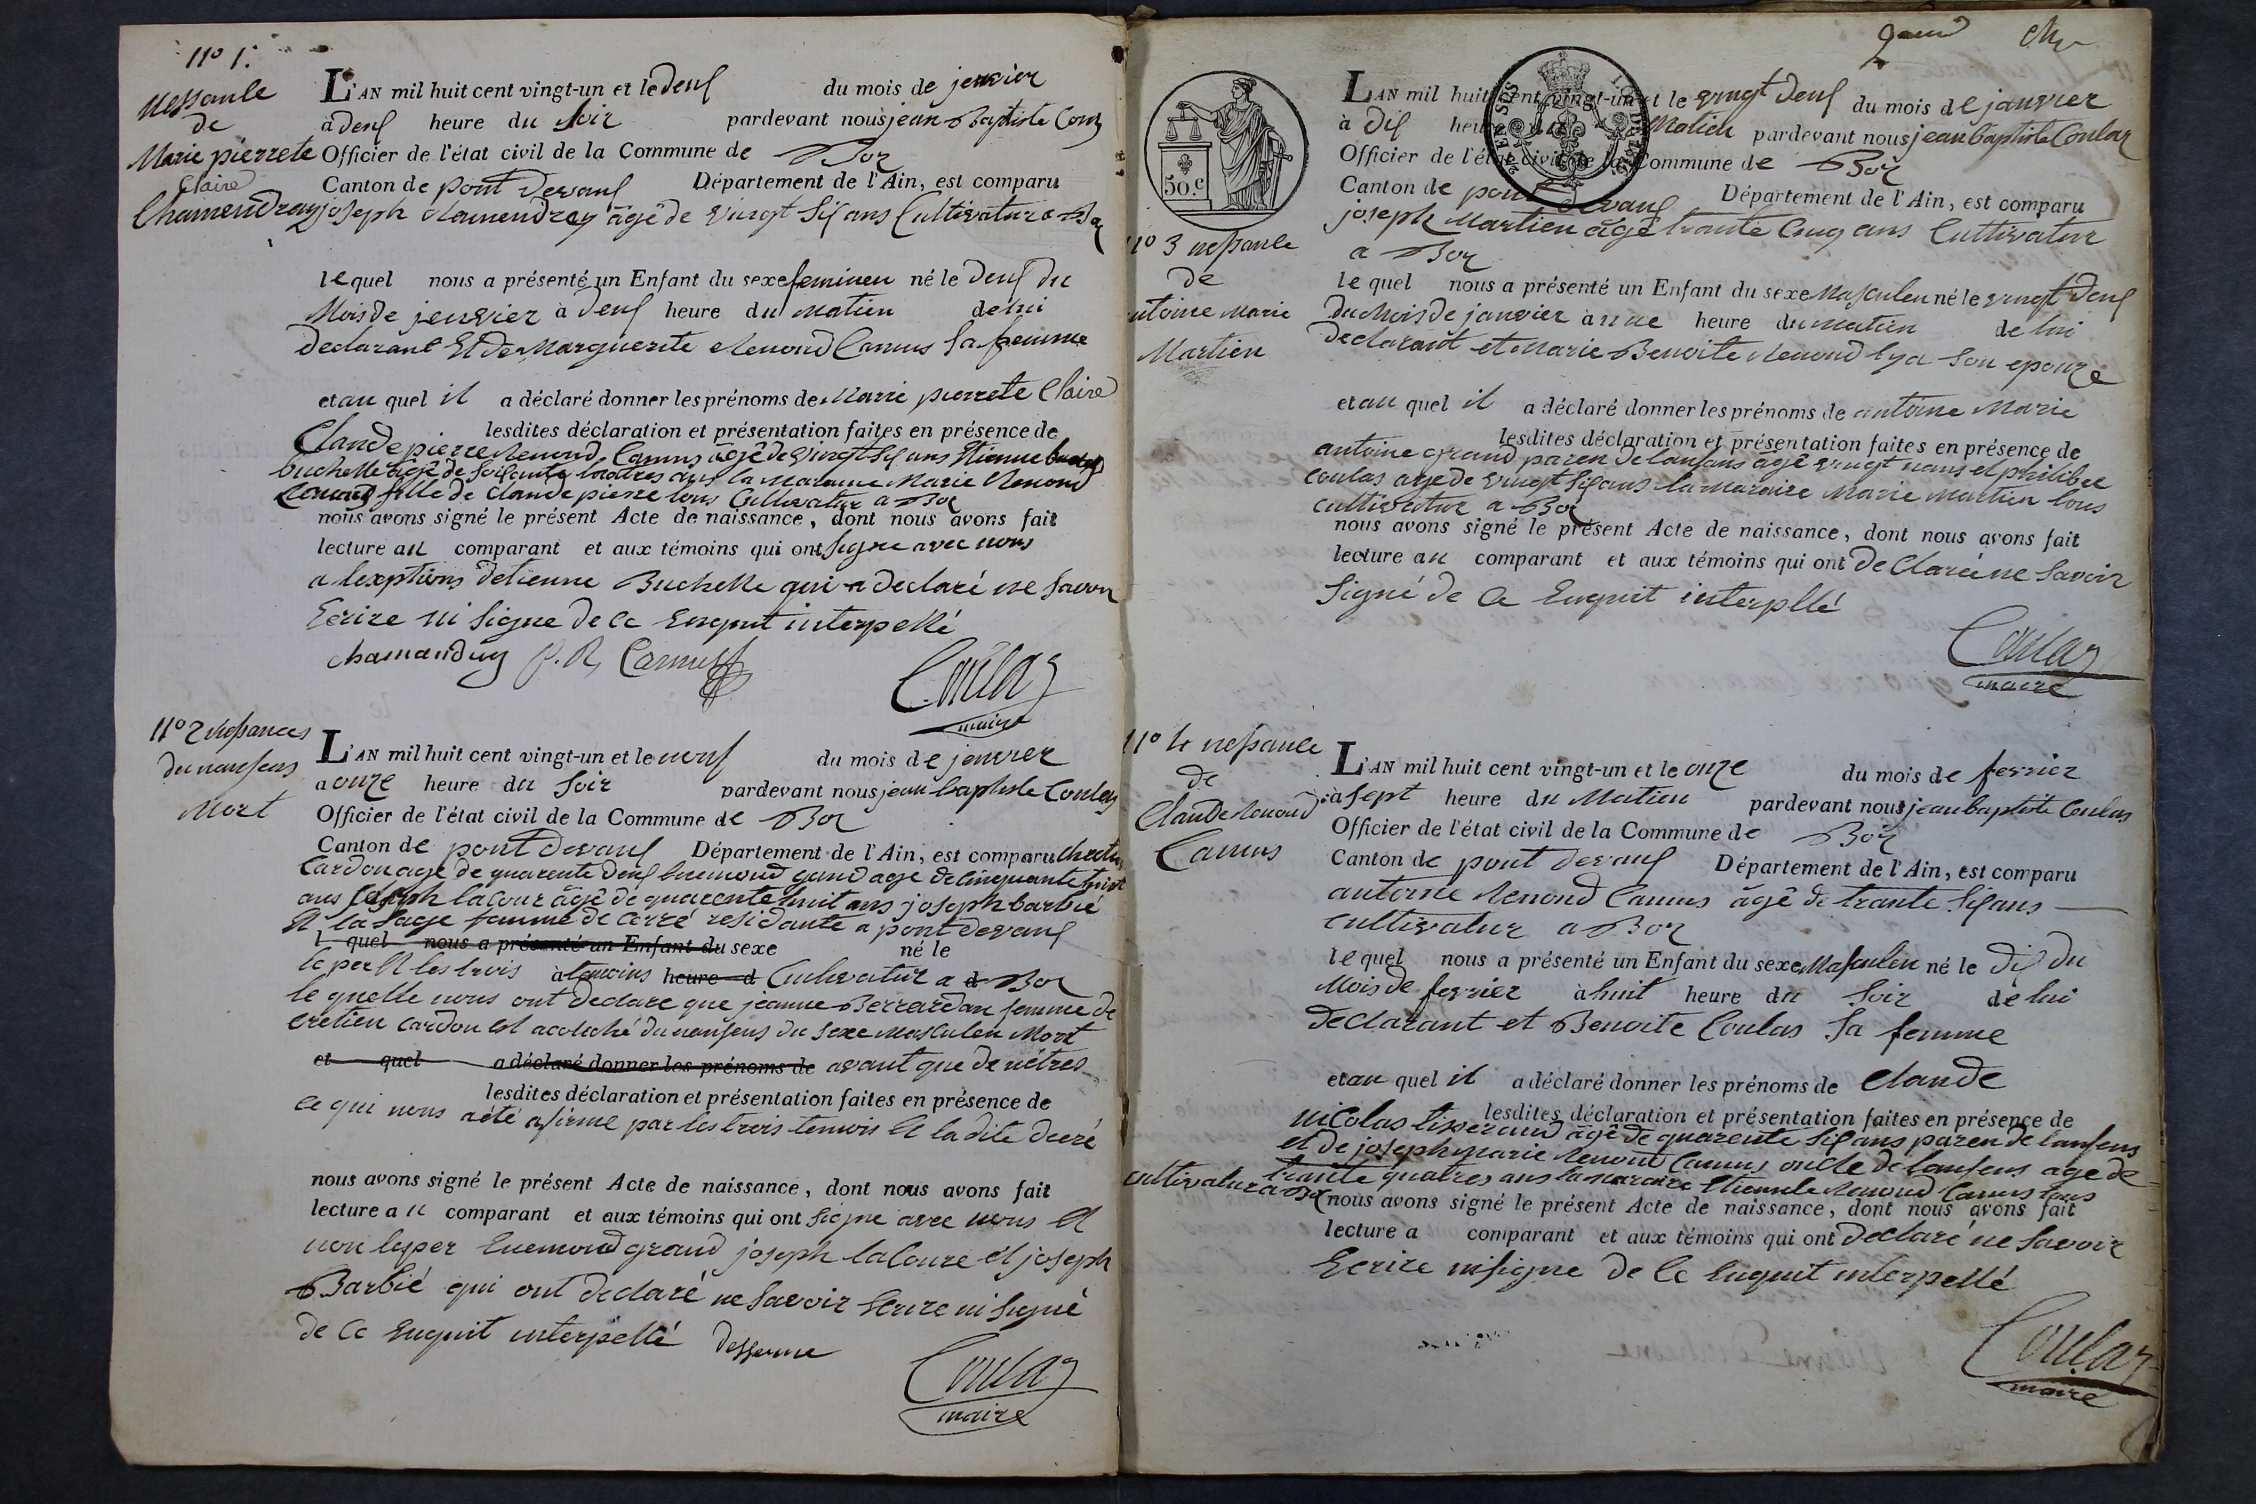 no 1.
nessanse
de
Marie pierrete
Claire
Chamendray
L'AN mil huit cent vingt-un et le deus du mois de jenvier
à deus heure du soir pardevant nous jean Baptiste
Officier de l'état civil de la Commune de Boz
Canton de pont devaus Département de l'Ain, est comparu
joseph chamendray âgé de vingt sis ans Cultivature a Boz
le quel nous a présenté un Enfant du sexe feminen né le deus du
Mois de jenvier à deus heure du Matien de lui
declarant Et de Marguerite Renoud Camus sa femme
et au quel il a déclaré donner les prénoms de Marie pierrete Claire
lesdites déclaration et présentation faites en présence de
Claude pierre Renoud Camus âgé de vingt sis ans Etienne
buchelle âgé de soisante ans la Maraine Marie Renoud
Camus fille de Claude pierre tous Cultivature a Boz
nous avons signé le présent Acte de naissance, dont nous avons fait
lecture au comparant et aux témoins qui ont signe avec nous
a lexptions detienne Buchelle qui a declaré ne savoir
Ecrire ni signe de ce Enquit interpellé
chamanduy p. R, Camus
Coulas
maire
no 2 nessances
du nausens
Mort
L'AN mil huit cent vingt-un et le neuf du mois de jenvier
a onze heure du soir pardevant nous jean baptiste Coulas
Officier de l'état civil de la Commune de Boz
Canton de pont devaus Département de l'Ain, est comparu
Cardon age de quarente deus Enemond grand age de cinquante
ans joseph lacour âgé de quarente huit ans joseph barbié
Et la sage femme de residante a pont devaus
l quel nous a présenté un Enfant du sexe né le
le per Et les trois à temoins heure d Cultivatur a d Boz
le quelle nous ont declare que jeanne Berrardan femme de
cretien cardon est acoloché du nausens du sexe Masculen Mort
et quel a déclaré donner les prénoms de avant que de nétres
lesdites déclaration et présentation faites en présence de
ce qui nous aété afirme par les trois temois Et la dite
nous avons signé le présent Acte de naissance, dont nous avons fait
lecture a u comparant et aux témoins qui ont signe avec nous Et
non lesper Enemond grand joseph laCoure et joseph
Barbié qui ont declaré ne savoir Ecrire ni signé
de ce Enquit interpellé
Coulas
maire
50.c
no 3 nessanse
de
antoine Marie
Martien
L'AN mil huit cent vingt-un et le vingt deus du mois de janvier
à dis heure du Matien pardevant nous jean baptiste Coulas
Officier de l'état civil de la Commune de Boz
Canton de pont devaus Département de l'Ain, est comparu
joseph Martien âgé trante Cinq ans Cultivatur
a Boz
le quel nous a présenté un Enfant du sexe Masculen né le vingt deus
du Mois de janvier à une heure du matien de lui
declarant et Marie Benoite Renoud son epouze
et au quel il a déclaré donner les prénoms de antoine Marie
lesdites déclaration et présentation faites en présence de
antoine grand paren de lansans âgé vingt nans et philibee
Coulas age de vingt sis ans la Maraire Marie Martien tous
cultivatur a Boz
nous avons signé le présent Acte de naissance, dont nous avons fait
lecture au comparant et aux témoins qui ont de claréé ne savoir
signé de ce Enquit interpllé
Coulas
maire
no 4 nessanse
de
Claude Renoud
Camus
L'AN mil huit cent vingt-un et le onze du mois de fevrier
à sept heure du Matien pardevant nous jean baptiste Coulas
Officier de l'état civil de la Commune de Boz
Canton de pont devaus Département de l'Ain, est comparu
antoine Renoud Camus âgé de trante sis ans
cultivatur a Boz
le quel nous a présenté un Enfant du sexe Masculen né le dis du
Mois de fevrier à huit heure du soir de lui
declarant et Benoite Coulas sa femme
et au quel il a déclaré donner les prénoms de Claude
lesdites déclaration et présentation faites en présence de
nicolas tiseraud âgé de quarente sis ans paren de lansens
et de joseph marie Renoud Camus oncle de lansens age de
trante quatres ans la maraire Renoud Camus tous
cultivatur a Boz nous avons signé le présent Acte de naissance, dont nous avons fait
lecture a comparant et aux témoins qui ont declaré ne savoir
Ecrire ni signe de Ce Enquit interpellé
Coulas
maire